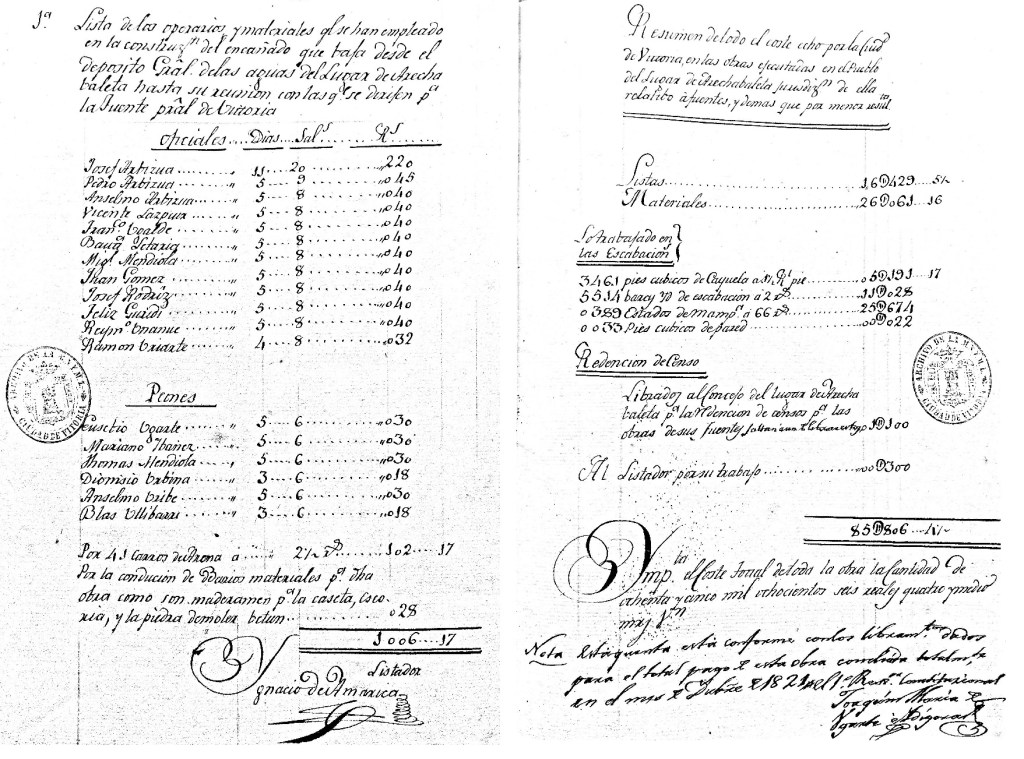 1ª
Lista de los operarios, y materiales ql se han empleado
en la construzn del encañado que baja desde el
deposito Gral. de las aguas del Lugar de Arecha
baleta hasta su reunion con las qe se dirijen pª
la fuente pral de Vittoria
oficiales.... Dias... Sals....... Rs
Josef Arbizua...... „ 11... 20 ......... „220
Pedro Arbizua...... „ 5.... 9 ......... „045
Anselmo Arbizua...... „ 5.... 8 ......... „040
Vicente Lazpiur...... „ 5.... 8 ......... „040
Franco. Ubalde...... „ 5.... 8 ......... „040
Bauqa Letaria...... „ 5.... 8 ......... „040
Migl Mendiola...... „ 5.... 8 ......... „040
Jhan Gomez...... „ 5.... 8 ......... „040
Josef Rodriz...... „ 5.... 8 ......... „040
Feliz Guridi...... „ 5.... 8 ......... „040
Reymo. Unanue...... „ 5.... 8 ......... „040
Ramon Uriarte...... „ 4.... 8 ......... „032
Peones
Eusebio Ugarte...... „ 5.... 6 ......... „030
Mariano Ibañez...... „ 5.... 6 ......... „030
Thomas Mendiola...... „ 5.... 6 ......... „030
Dionisio Urbina...... „ 3.... 6 ......... „018
Anselmo Uribe...... „ 5.... 6 ......... „030
Blas Ullibarri...... „ 3.... 6 ......... „018
Por 41 Carros de Arena á ...... „ 2½ rs .... 102.... 17
Por la condución de Barios materiales pª. dha
obra como son maderamen pª la caseta, esco
ria, y la piedra de moler betun........ „028
1006.... 17
Listador
Ygnacio de Amarica
ARCHIVO DE LA M.N. Y M.L. CIUDAD DE VITORIA
Resumen de todo el coste echo por la Ciud
de Vitoria, en las obras ejecutadas en el Pueblo
del Lugar de Arechabaleta jurisdizn de ella
relatibo á fuentes, y demas que por menor resulta
Listas........................ 16D429... 5½
Materiales................... 26D061... 16
Lo trabajado en
las Escabación
3461 pies cubicos de Cayuela a 1½ Rl pie.... „05D191... 17
5514 bares Yd de escabación á 2 rs........ 11D028
0389 Estados de Mampª á 66 rs....... 25D674
0033 Pies cubicos de pared....... 00D022
Redencion de Censo
Librados al Concejo del lugar de Arecha
baleta pª la redencion de censos pª las
obras de sus fuentes 1D100
Al Listador por su trabajo............ 00D300
85D806... 4½
Ymp.ta el Coste total de toda la obra la Cantidad de
ochenta y cinco mil ochocientos seis reales quatro y medio
mrs vn
Nota Esta quenta está conforme con los libramtos dados
para el total pago de esta obra concluida totalmte
en el mes de Dubre de 1821 pel 1º Rexr. Constitucional
Joaquin Maria de
Ugarte
ARCHIVO DE LA M.N. Y M.L. CIUDAD DE VITORIA